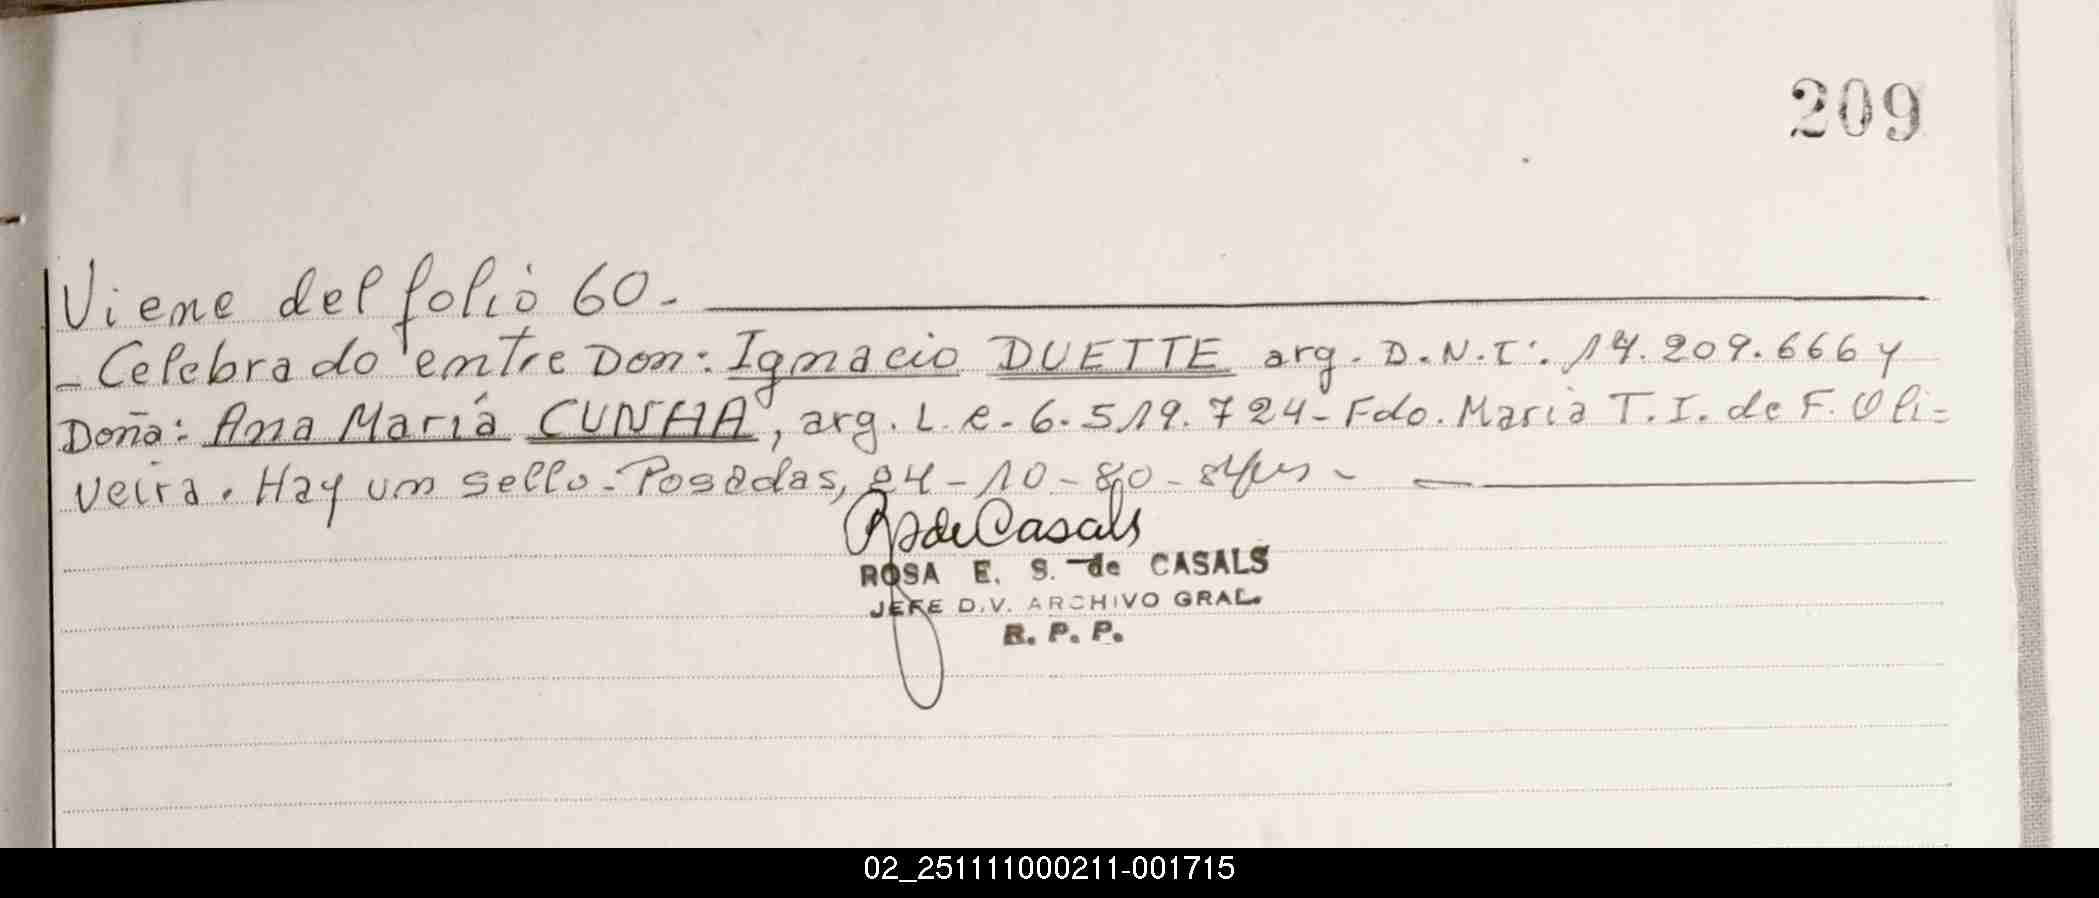 209
Viene del folio 60.-
- Celebrado entre Don: Ignacio DUETTE arg. D.N.I: 14.209.666 y
Doña: Ana María CUNHA, arg. L.e. 6.519.724 - Fdo. Maria T. I. de F. Oli-
veira. Hay un sello - Posadas, 24-10-80 -
de Casals
ROSA E. S. de CASALS
JEFE D.V. ARCHIVO GRAL.
R. P. P.
02_251111000211-001715